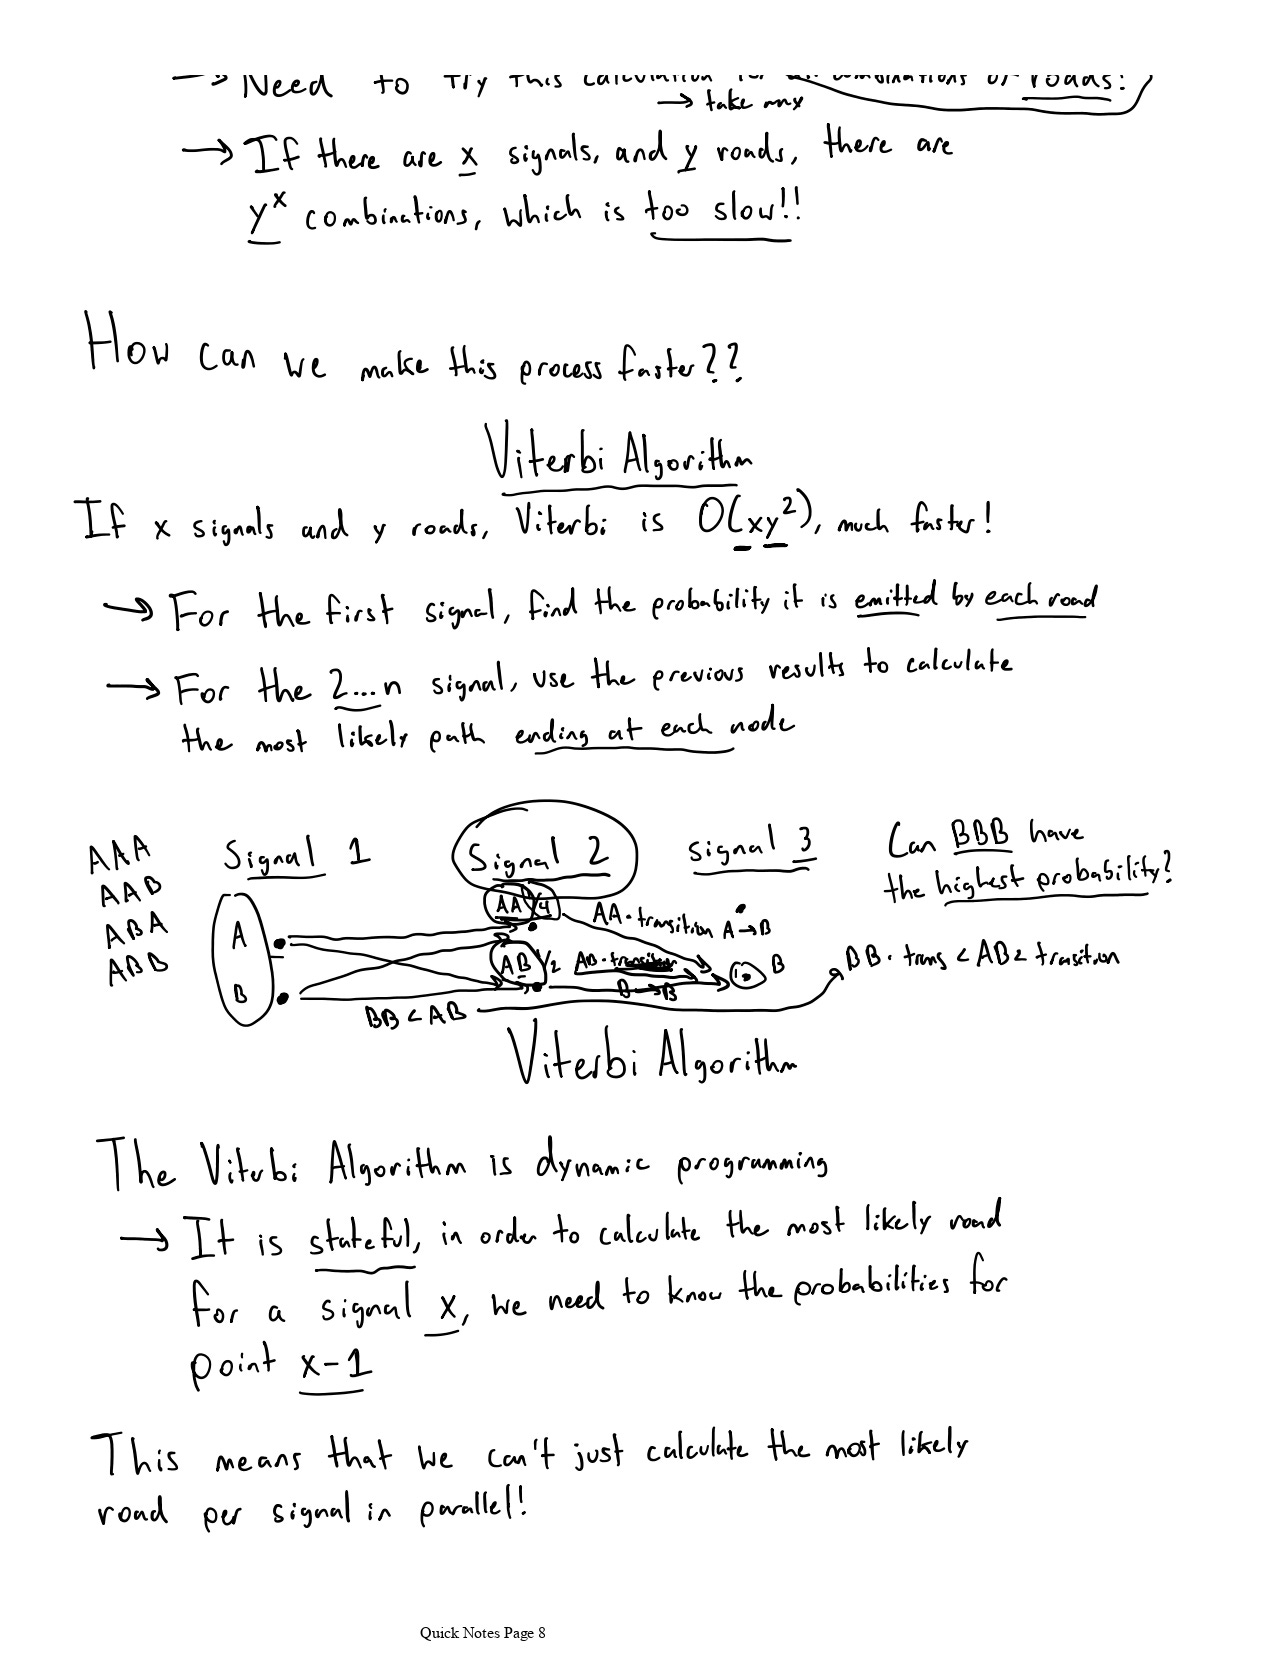 → Need to try this calculation for all combinations of roads!
→ take max
→ If there are x signals, and y roads, there are
y^x combinations, which is too slow!!
How can we make this process faster??
Viterbi Algorithm
If x signals and y roads, Viterbi is O(xy²), much faster!
→ For the first signal, find the probability it is emitted by each road
→ For the 2...n signal, use the previous results to calculate
the most likely path ending at each node
AAA
AAB
ABA
ABB
Signal 1
Signal 2
Signal 3
Can BBB have
the highest probability?
A
B
AA 1/4
AB 1/2
AA · transition A→B
AB · transition
B→B
B
BB < AB
BB · trans < AB · transition
Viterbi Algorithm
The Viterbi Algorithm is dynamic programming
→ It is stateful, in order to calculate the most likely road
for a signal x, we need to know the probabilities for
point x-1
This means that we can't just calculate the most likely
road per signal in parallel!
Quick Notes Page 8